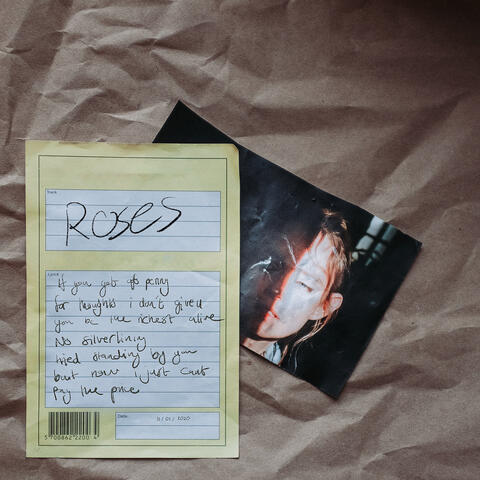 Track:
Roses
Lyrics:
If you got penny
for thoughts i don't give u
you be the richest alive
No silverlining
tried standing by you
but now i just cant
pay the price
Date:
5 700862 2200 4